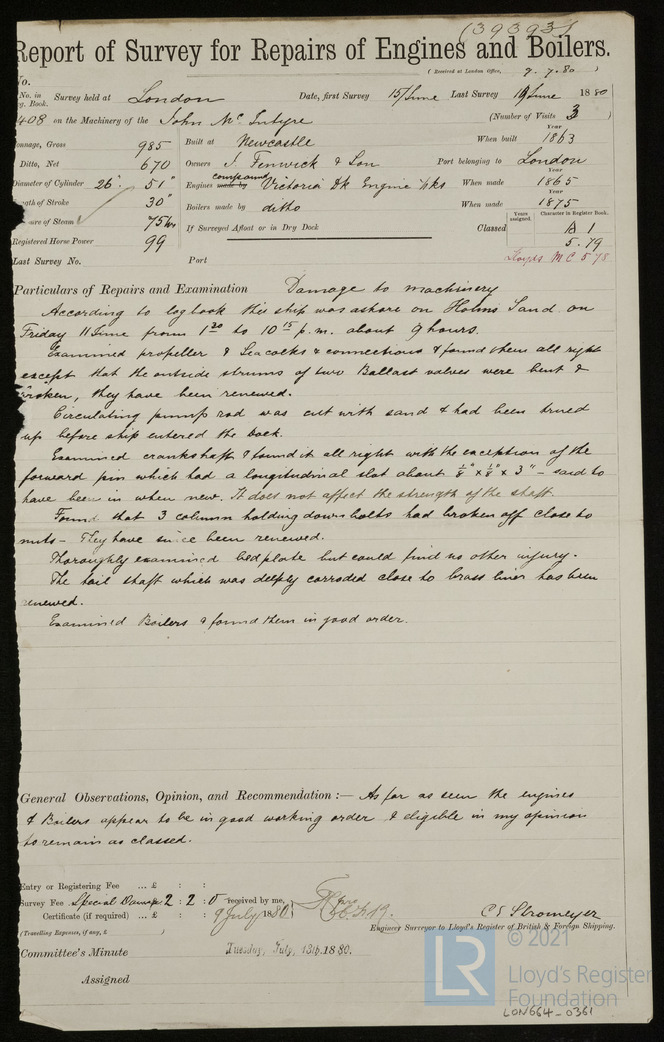 (39393)
Report of Survey for Repairs of Engines and Boilers.
(Received at London Office, 9.7.80)
No.
No. in Survey held at London Date, first Survey 15/June Last Survey 19/June 1880
g. Book.
408 on the Machinery of the John McIntyre (Number of Visits 3
Tonnage, Gross 985 Built at Newcastle When built Year 1863
Ditto, Net 670 Owners J. Fenwick & Son Port belonging to London
Diameter of Cylinder 26" 51" Engines compound made by Victoria Dk Engine Wks When made Year 1865
gth of Stroke 30" Boilers made by ditto When made Year 1875
ure of Steam 75 lbs If Surveyed Afloat or in Dry Dock Classed Years assigned. Character in Register Book. A 1
Registered Horse Power 99 5.79
Last Survey No. Port Lloyds M C 5 78
Particulars of Repairs and Examination Damage to machinery
According to log book this ship was ashore on Holms Sand on
Friday 11 June from 1 30 to 10 15 p.m. about 9 hours.
Examined propeller & Seacocks & connections & found them all right
except that the outside strums of two Ballast valves were bent &
broken, they have been renewed.
Circulating pump rod was cut with sand & had been trued
up before ship entered the Dock.
Examined crankshaft & found it all right with the exception of the
forward pin which had a longitudinal slot about 1/8" x 1/8" x 3" – said to
have been in when new. It does not affect the strength of the shaft.
Found that 3 column holding down bolts had broken off close to
nuts – They have since been renewed.
Thoroughly examined bedplate but could find no other injury.
The tail shaft which was deeply corroded close to brass liner has been
renewed.
Examined Boilers & found them in good order.
General Observations, Opinion, and Recommendation :— As far as seen the engines
& Boilers appear to be in good working order & eligible in my opinion
to remain as classed.
Entry or Registering Fee ... £ : :
Survey Fee Special Damage 2 : 2 : 0 received by me,
Certificate (if required) ... £ : : 9 July 1880
(Travelling Expenses, if any, £ )
C E Stromeyer
Engineer Surveyor to Lloyd's Register of British & Foreign Shipping.
Committee's Minute Tuesday, July, 13th, 1880.
Assigned
LR
© 2021
Lloyd's Register
Foundation
LON664-0361